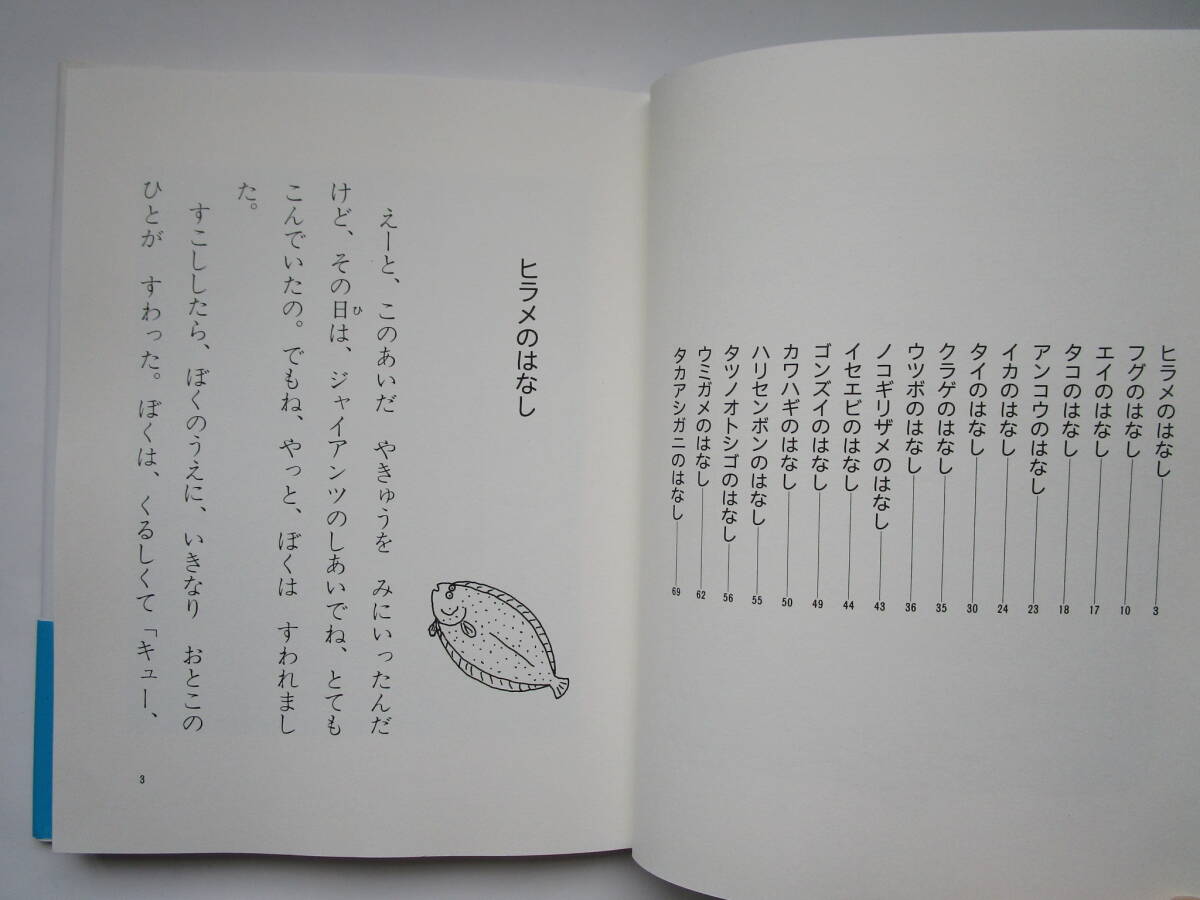 ヒラメのはなし――3
フグのはなし――10
エイのはなし――17
タコのはなし――18
アンコウのはなし――23
イカのはなし――24
タイのはなし――30
クラゲのはなし――35
ウツボのはなし――36
ノコギリザメのはなし――43
イセエビのはなし――44
ゴンズイのはなし――49
カワハギのはなし――50
ハリセンボンのはなし――55
タツノオトシゴのはなし――56
ウミガメのはなし――62
タカアシガニのはなし――69
ヒラメのはなし
えーと、このあいだ やきゅうを みにいったんだ
けど、その日は、ジャイアンツのしあいでね、とても
ひ
こんでいたの。でもね、やっと、ぼくは すわれまし
た。
すこししたら、ぼくのうえに、いきなり おとこの
ひとが すわった。ぼくは、くるしくて「キュー、
3